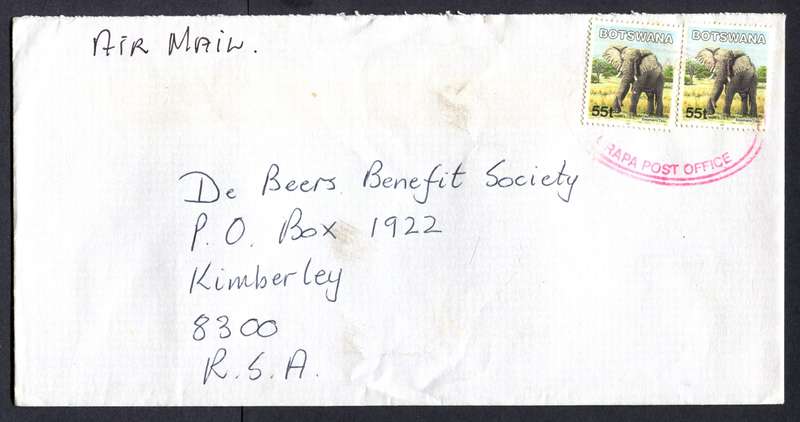 AIR MAIL.
BOTSWANA BOTSWANA
55t 55t
RAPA POST OFFICE
De Beers Benefit Society
P.O. Box 1922
Kimberley
8300
R.S.A.